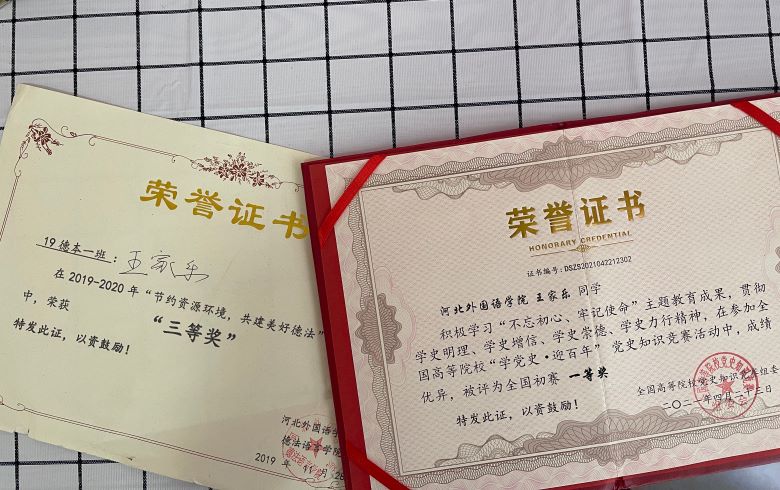 荣誉证书
19德本一班：王家乐
在2019-2020年“节约资源环境，共建美好德法”
中，荣获 “三等奖”
特发此证，以资鼓励！
河北外国语学
德法语言学院
2019年11月28
荣誉证书
HONORARY CREDENTIAL
证书编号：DSZS2021042212302
河北外国语学院 王家乐 同学
积极学习“不忘初心、牢记使命”主题教育成果，贯彻
学史明理、学史增信、学史崇德、学史力行精神，在参加全
国高等院校“学党史·迎百年”党史知识竞赛活动中，成绩
优异，被评为全国初赛 一等奖
特发此证，以资鼓励！
全国高等院校党史知识竞赛组委
二〇二一年四月二十三日